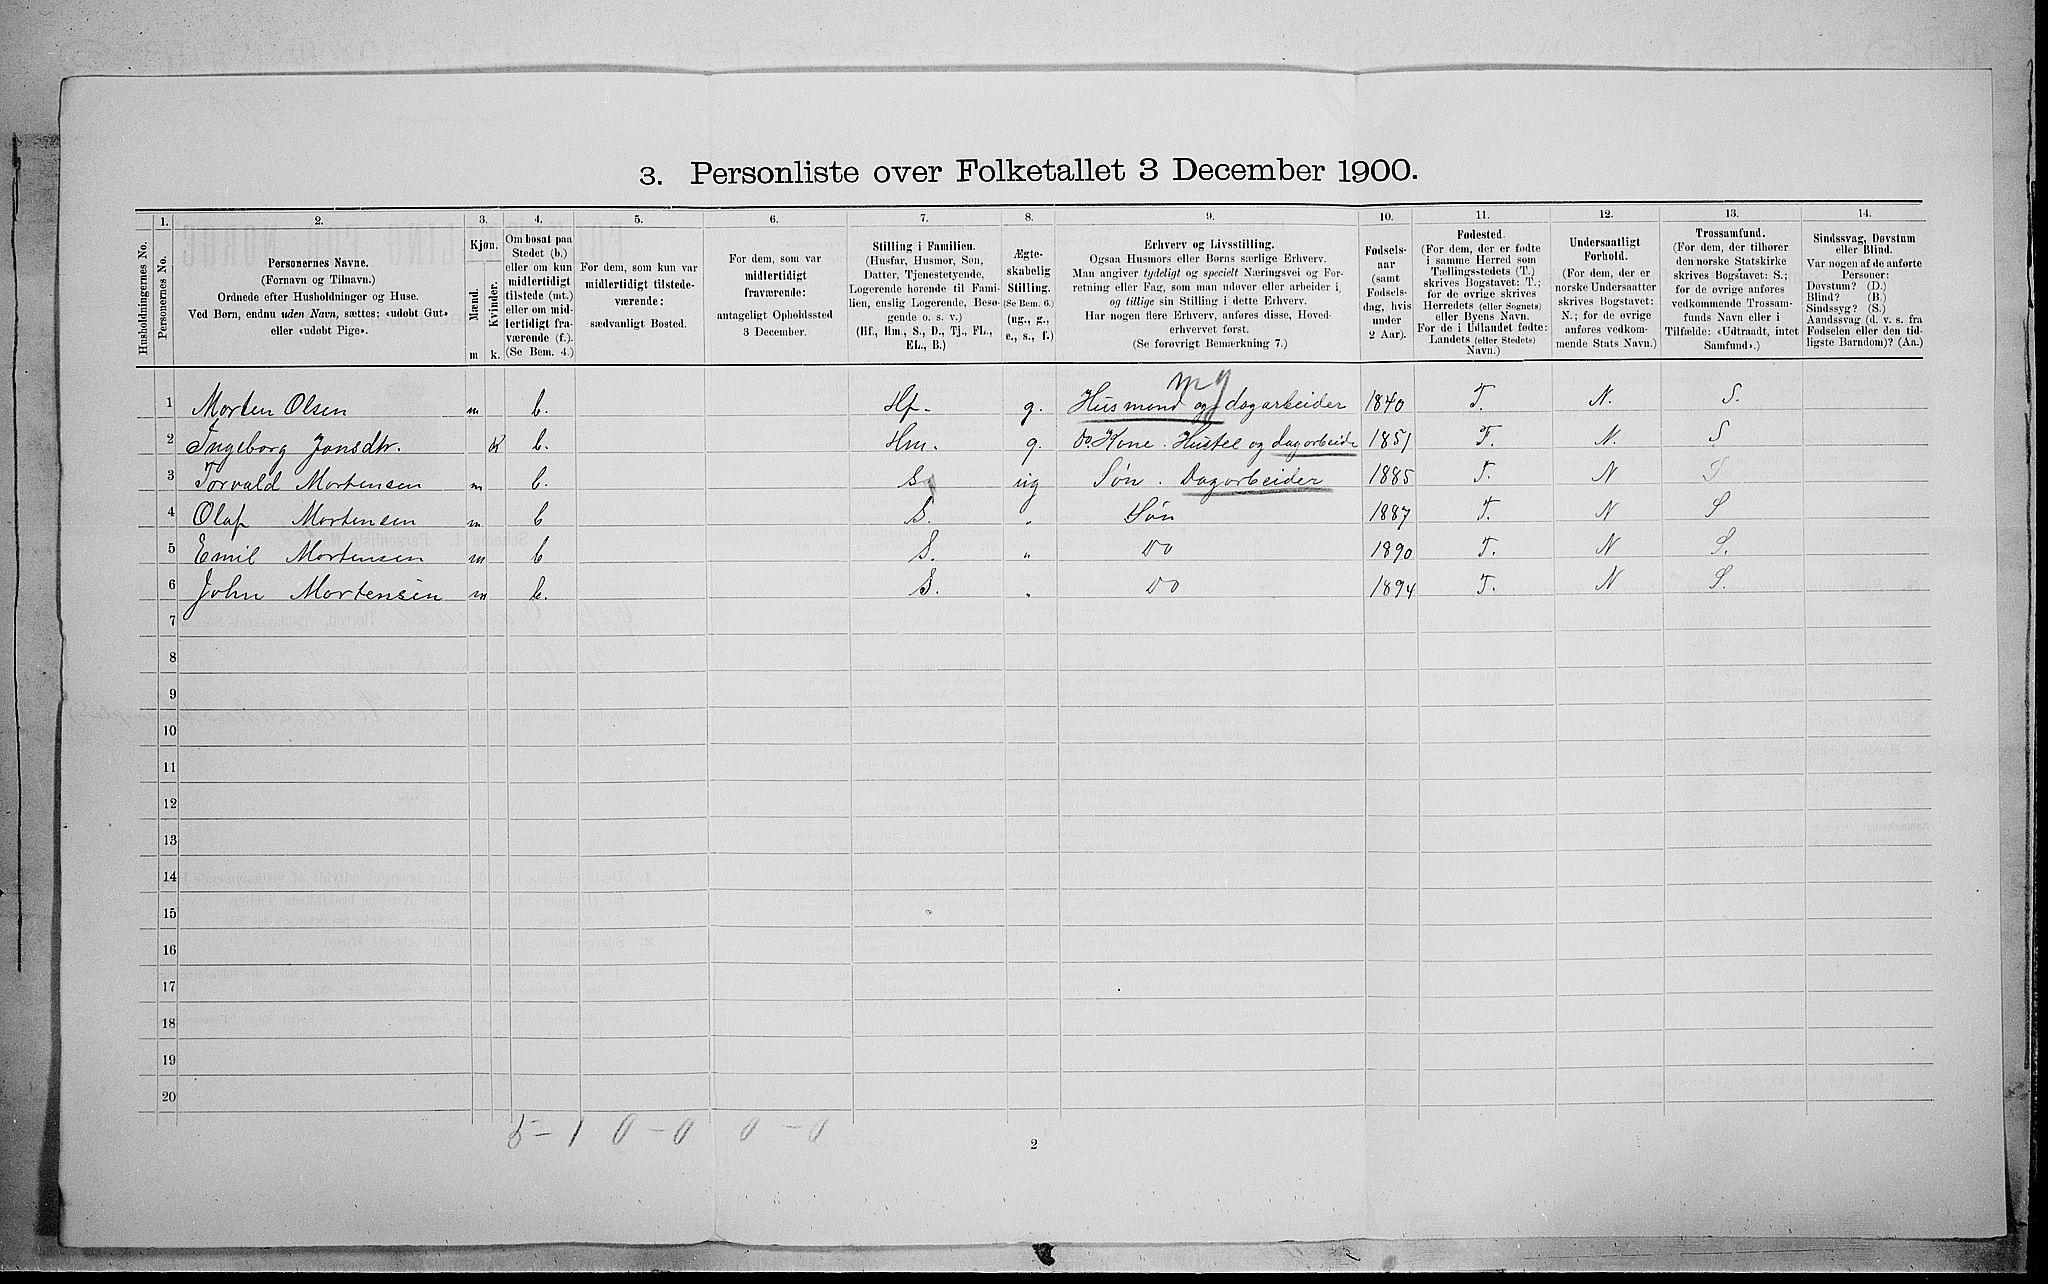 3. Personliste over Folketallet 3 December 1900.
1. 2. 3. 4. 5. 6. 7. 8. 9. 10. 11. 12. 13. 14.
Husholdningernes No.
Personernes No.
Personernes Navne.
(Fornavn og Tilnavn.)
Ordnede efter Husholdninger og Huse.
Ved Børn, endnu uden Navn, sættes: «udøbt Gut»
eller «udøbt Pige».
Kjøn.
Mænd.
Kvinder.
m k.
Om bosat paa
Stedet (b.)
eller om kun
midlertidigt
tilstede (mt.)
eller om mid-
lertidigt fra-
værende (f.).
(Se Bem. 4.)
For dem, som kun var
midlertidigt tilstede-
værende:
sædvanligt Bosted.
For dem, som var
midlertidigt
fraværende:
antageligt Opholdssted
3 December.
Stilling i Familien.
(Husfar, Husmor, Søn,
Datter, Tjenestetyende,
Logerende hørende til Fami-
lien, enslig Logerende, Besø-
gende o. s. v.)
(Hf., Hm., S., D., Tj., FL.,
EL., B.)
Ægte-
skabelig
Stilling.
(Se Bem. 6.)
(ug., g.,
e., s., f.)
Erhverv og Livsstilling.
Ogsaa Husmors eller Børns særlige Erhverv.
Man angiver tydeligt og specielt Næringsvei og For-
retning eller Fag, som man udøver eller arbeider i,
og tillige sin Stilling i dette Erhverv.
Har nogen flere Erhverv, anføres disse, Hoved-
erhvervet først.
(Se forøvrigt Bemærkning 7.)
Fødsels-
aar
(samt
Fødsels-
dag, hvis
under
2 Aar).
Fødested.
(For dem, der er fødte
i samme Herred som
Tællingsstedets (T.)
skrives Bogstavet: T.;
for de øvrige skrives
Herredets (eller Sognets)
eller Byens Navn.
For de i Udlandet fødte:
Landets (eller Stedets)
Navn.)
Undersaatligt
Forhold.
(For dem, der er
norske Undersaatter
skrives Bogstavet:
N.; for de øvrige
anføres vedkom-
mende Stats Navn.)
Trossamfund.
(For dem, der tilhører
den norske Statskirke
skrives Bogstavet: S.;
for de øvrige anføres
vedkommende Trossam-
funds Navn eller i
Tilfælde: «Udtraadt, intet
Samfund».)
Sindssvag, Døvstum
eller Blind.
Var nogen af de anførte
Personer:
Døvstum? (D.)
Blind? (B.)
Sindssyg? (S.)
Aandssvag (d. v. s. fra
Fødselen eller den tid-
ligste Barndom)? (Aa.)
1 Morten Olsen m b. Hf. g. Husmand og dagarbeider 1840 T. N. S.
2 Ingeborg Jonsdtr. K b. Hm. g. Do. Kone. Hustel og dagarbeide 1851 T. N. S
3 Torvald Mortensen m b. S. ug Søn. Dagarbeider 1885 T. N S
4 Olaf Mortensen m b S. „ Søn 1887 T. N S
5 Emil Mortensen m b S. „ Do 1890 T. N S.
6 John Mortensen m b. S. „ Do 1894 T. N S.
7
8
9
10
11
12
13
14
15
16
17
18
19
20
5 - 1 0 - 0 0 - 0
2